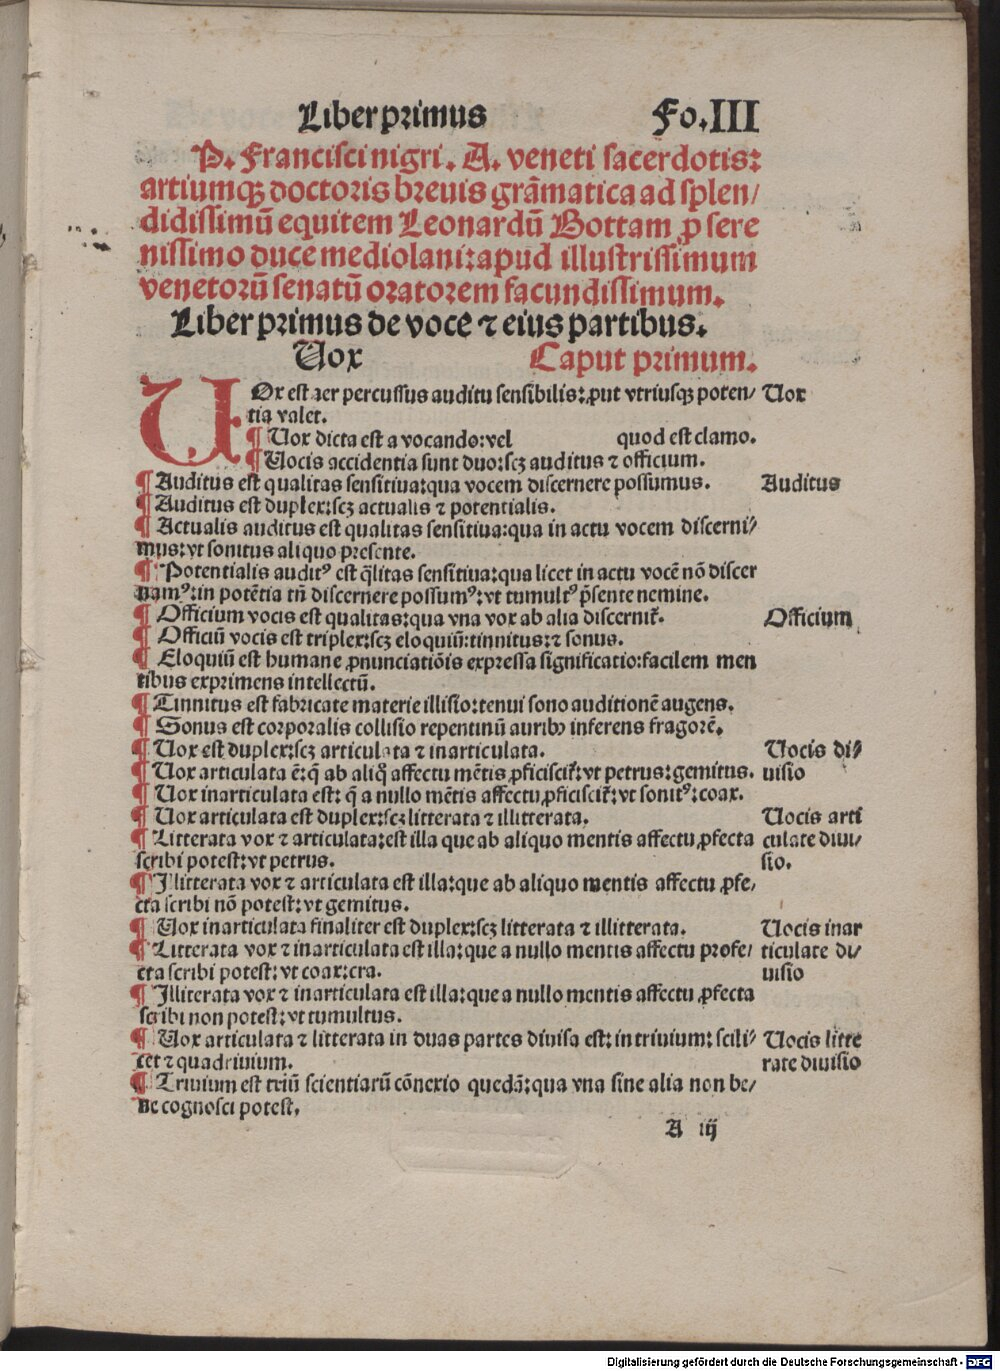 Liber primus Fo.III
P. Francisci nigri. A. veneti sacerdotis:
artiumqꝫ doctoris breuis grãmatica ad splen/
didissimũ equitem Leonardũ Bottam ꝓ sere
nissimo duce mediolani: apud illustrissimum
venetorũ senatũ oratorem facundissimum.
Liber primus de voce ⁊ eius partibus.
Uox Caput primum.
UOx est aer percussus auditu sensibilis: ꝓut vtriusqꝫ poten/ Uox
tia valet.
¶ Uox dicta est a vocando: vel quod est clamo.
¶ Uocis accidentia sunt duo: scꝫ auditus ⁊ officium.
¶ Auditus est qualitas sensitiua: qua vocem discernere possumus. Auditus
¶ Auditus est duplex: scꝫ actualis ⁊ potentialis.
¶ Actualis auditus est qualitas sensitiua: qua in actu vocem discerni/
mus: vt sonitus aliquo presente.
¶ Potentialis auditꝰ est q̃litas sensitiua: qua licet in actu vocẽ nõ discer
namꝰ: in potẽtia tñ discernere possumꝰ: vt tumultꝰ p̃sente nemine.
¶ Officium vocis est qualitas: qua vna vox ab alia discernit᷑. Officium
¶ Officiũ vocis est triplex: scꝫ eloquiũ: tinnitus: ⁊ sonus.
¶ Eloquiũ est humane ꝓnunciatiõis expressa significatio: facilem men
tibus exprimens intellectũ.
¶ Tinnitus est fabricate materie illisio: tenui sono auditionẽ augens.
¶ Sonus est corporalis collisio repentinũ auribꝰ inferens fragorẽ.
¶ Uox est duplex: scꝫ articulata ⁊ inarticulata. Uocis di/
¶ Uox articulata ẽ: q̃ ab aliq̃ affectu mẽtis ꝓficiscit᷑: vt petrus: gemitus. uisio
¶ Uox inarticulata est: q̃ a nullo mẽtis affectu ꝓficiscit᷑: vt sonitꝰ: coax.
¶ Uox articulata est duplex: scꝫ litterata ⁊ illitterata. Uocis arti
¶ Litterata vox ⁊ articulata: est illa que ab aliquo mentis affectu ꝓfecta culate diui/
scribi potest: vt petrus. sio.
¶ Illitterata vox ⁊ articulata est illa: que ab aliquo mentis affectu ꝓfe/
cta scribi nõ potest: vt gemitus.
¶ Uox inarticulata finaliter est duplex: scꝫ litterata ⁊ illitterata. Uocis inar
¶ Litterata vox ⁊ inarticulata est illa: que a nullo mentis affectu profe/ ticulate di/
cta scribi potest: vt coax: cra. uisio
¶ Illiterata vox ⁊ inarticulata est illa: que a nullo mentis affectu ꝓfecta
scribi non potest: vt tumultus.
¶ Uox articulata ⁊ litterata in duas partes diuisa est: in triuium: scili/ Uocis litte
cet ⁊ quadriuium. rate diuisio
¶ Triuium est triũ scientiarũ cõnexio quedã: qua vna sine alia non be/
ne cognosci potest.
A iij
Digitalisierung gefördert durch die Deutsche Forschungsgemeinschaft - DFG